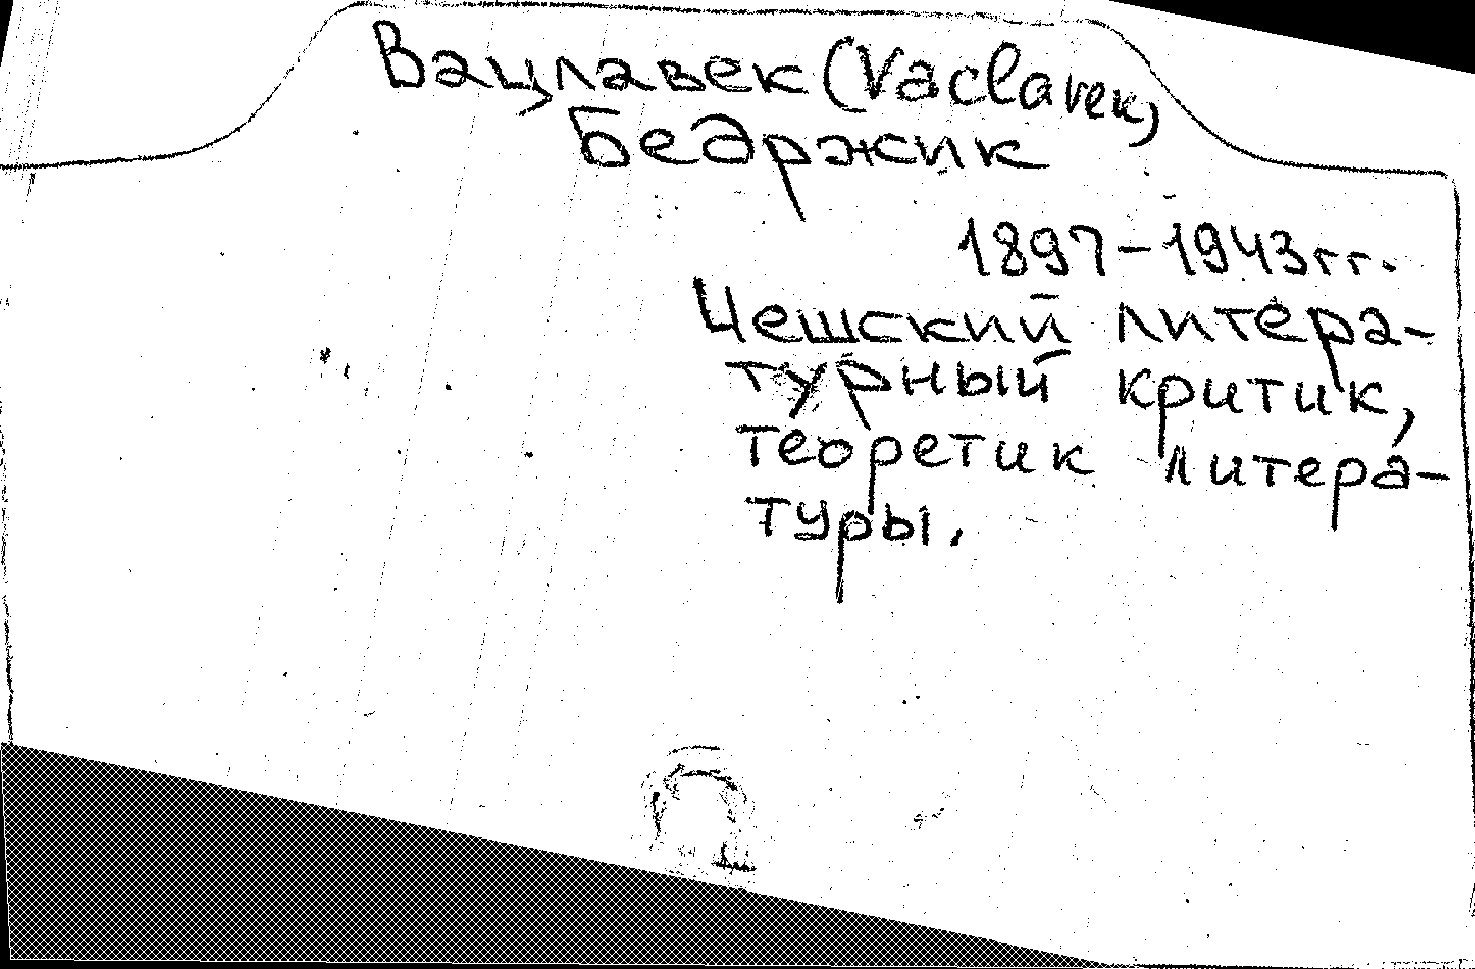 Вацлавек (Vaclavek)
Бедржик
1897-1943гг.
Чешский литера-
турный критик,
теоретик литера-
туры.